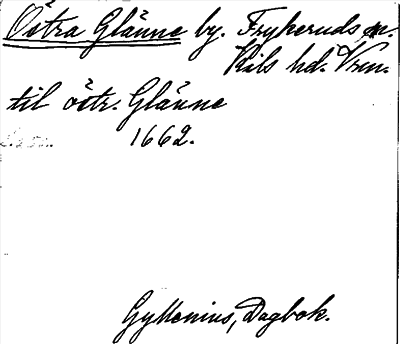 Östra Glänne by. Frykeruds sn.
Kils hd. Vrm.
til östr. Glänne
1662.
Gyllenius, Dagbok.